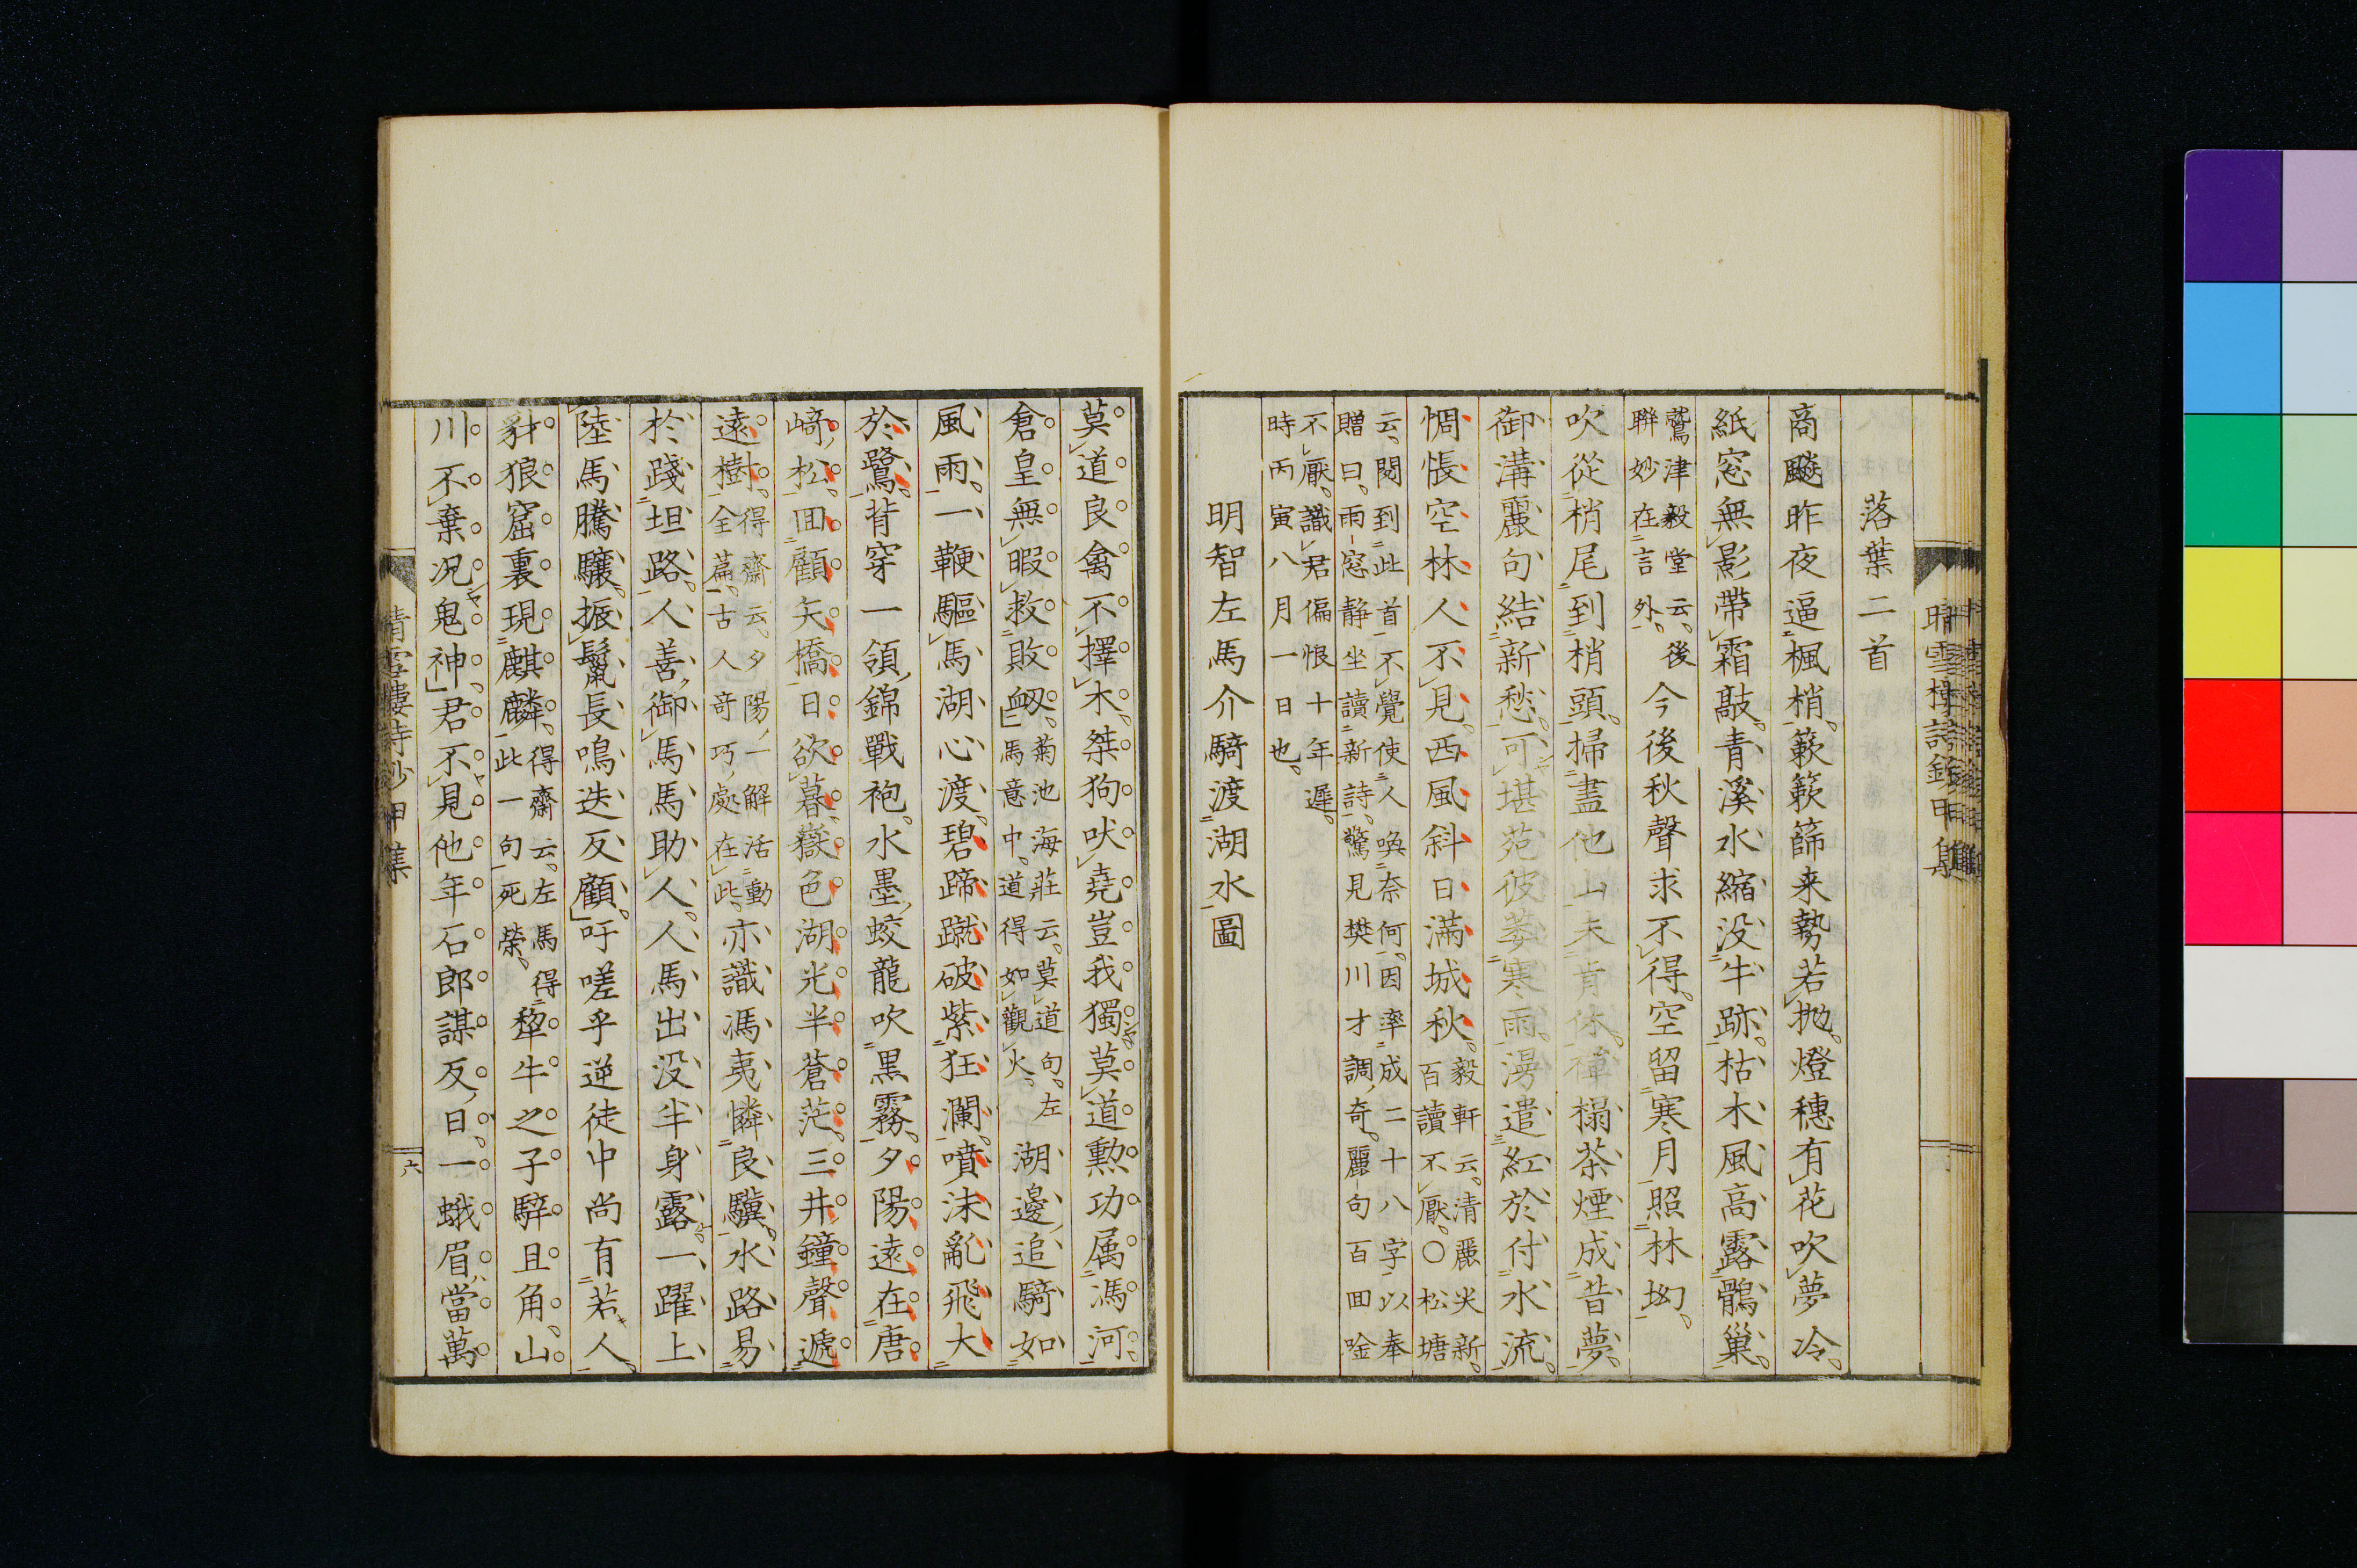 落葉二首
商飇昨夜逼楓梢。簌簌篩来勢若抛。燈穗有花吹夢冷。
紙窓無影帶霜敲。青溪水縮没牛跡。枯木風高露鶻巢。
鷲津毅堂云。後
聯妙在言外。
今後秋聲求不得。空留寒月照林坳。
吹從梢尾到梢頭。掃盡他山未肯休。禅榻茶煙成昔夢。
御溝麗句結新愁。可堪苑彼萎寒雨。漫遣紅於付水流。
惆悵空林人不見。西風斜日滿城秋。
毅軒云。清麗尖新。
百讀不厭。〇松塘
云。閱到此首不覺使人喚奈何。因率成二十八字以奉
贈曰。雨窓静坐讀新詩。驚見樊川才調奇。麗句百囬唫
不厭。識君偏恨十年遲。
時丙寅八月一日也。
明智左馬介騎渡湖水圖
晴雪樓詩鈔甲集
莫道良禽不擇木。桀狗吠堯豈我獨。莫道勲功属馮河。
倉皇無暇救敗衂。
菊池海莊云。莫道句。左
馬意中。道得如觀火。
湖邊追騎如
風雨。一鞭驅馬湖心渡。碧蹄蹴破紫狂瀾。噴沫亂飛大
於鷺。背穿一領錦戰袍。水墨蛟龍吹黒霧。夕陽遠在唐
﨑松。囬顧矢橋日欲暮。嶽色湖光半蒼茫。三井鐘聲遞
遠樹。
得齋云。夕陽一解活動
全篇。古人奇巧處在此。
亦識馮夷憐良驥。水路易
於踐坦路。人善御馬馬助人。人馬出没半身露。一躍上
陸馬騰驤。振鬣長鳴迭反顧。吁嗟乎逆徒中尚有若人。
豺狼窟裏現麒麟。
得齋云。左馬得
此一句死榮。
犂牛之子騂且角。山
川不棄况鬼神。君不見他年石郎謀反日。一蛾眉當萬
晴雪樓詩鈔甲集
六